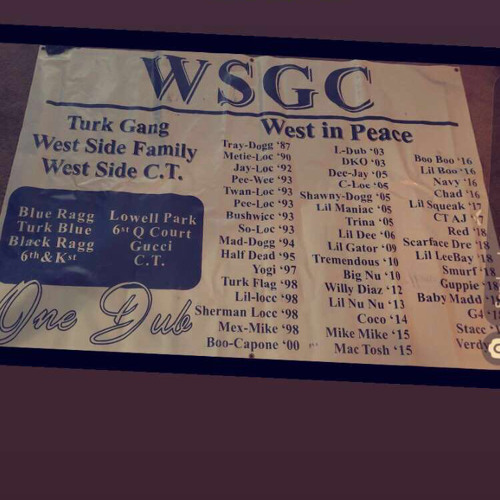 WSGC
Turk Gang
West Side Family
West Side C.T.
Blue Ragg
Turk Blue
Black Ragg
6th & Kst
Lowell Park
6st Q Court
Gucci
C.T.
One Dub
West in Peace
Tray-Dogg '87
Metie-Loc '90
Jay-Loc '92
Pee-Wee '93
Twan-Loc '93
Pee-Loc '93
Bushwicc '93
So-Loc '93
Mad-Dogg '94
Half Dead '95
Yogi '97
Turk Flag '98
Lil-locc '98
Sherman Locc '98
Mex-Mike '98
Boo-Capone '00
L-Dub '03
DKO '03
Dee-Jay '05
C-Loc '05
Shawny-Dogg '05
Lil Maniac '05
Trina '05
Lil Dee '06
Lil Gator '09
Tremendous '10
Big Nu '10
Willy Diaz '12
Lil Nu Nu '13
Coco '14
Mike Mike '15
Mac Tosh '15
Boo Boo '16
Lil Boo '16
Navy '16
Chad '16
Lil Squeak '17
CTAJ
Red '18
Scarface Dre '18
Lil LeeBay '18
Smurf '18
Guppie '18
Baby Madd
G4
Stacc
Verdy